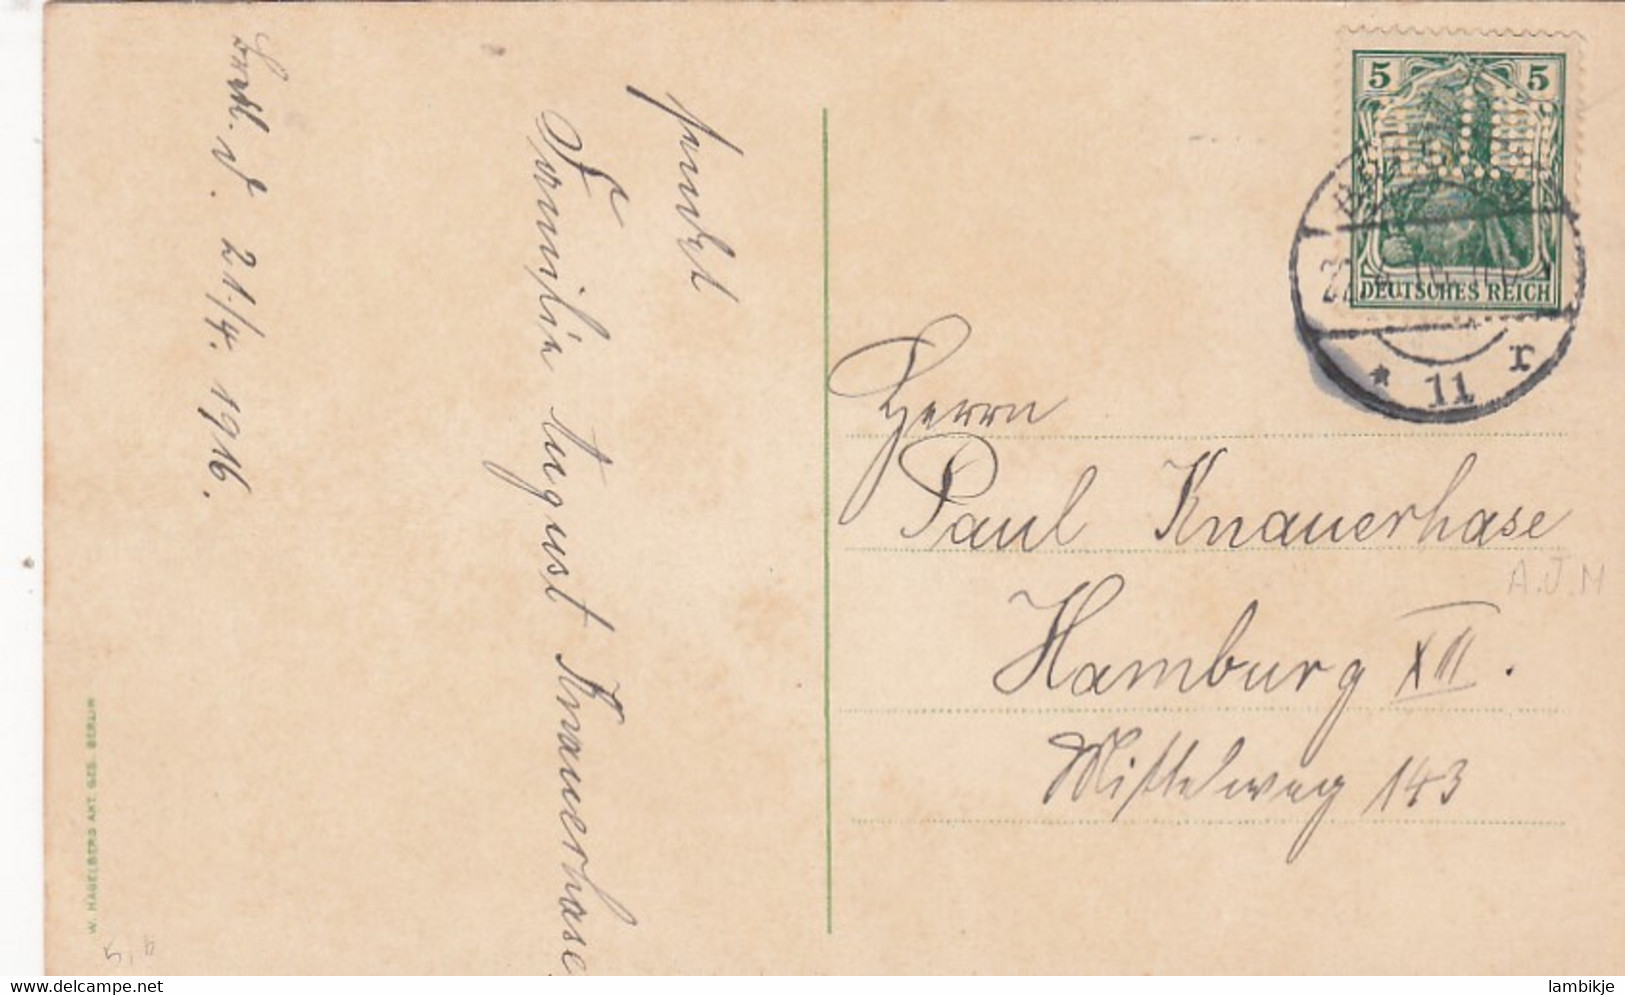 sendet
Familie August Knauerhase
21./4. 1916.
W. HAGELBERG AKT. GES. BERLIN
5 5
DEUTSCHES REICH
* 11 r
Herrn
Paul Knauerhase
Hamburg XIII.
Mittelweg 143
A.J.M
delcampe.net
lambikje